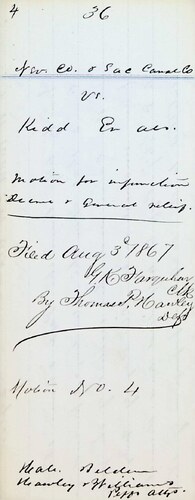 4 36
Nev. Co. & Sac Canal Co
vs.
Kidd Et als.
Motion for injunction
Decree & General relief.
Filed Aug 3d 1867
G.K. Farquhar
Clk
By Thomas P. Hawley
Dept
Motion No. 4
Hale Belden
Hawley & Williams
Plffs Attys